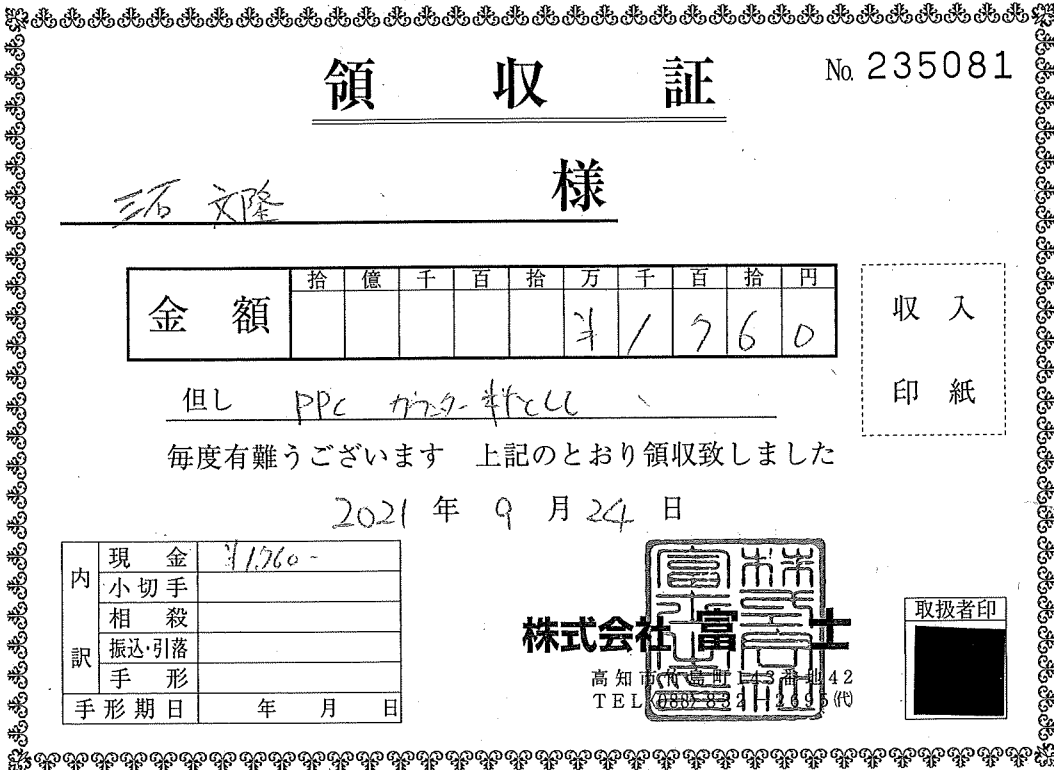 領 収 証
No. 235081
三石 文隆 様
金 額 拾 億 千 百 拾 万 千 百 拾 円
¥ 1 7 6 0
収 入
印 紙
但し PPC カウンター料として
毎度有難うございます 上記のとおり領収致しました
2021 年 9 月 24 日
内 訳
現 金 ¥1,760-
小切手
相 殺
振込・引落
手 形
手形期日 年 月 日
株式会社 富 士
高知市竹島町143番地42
TEL (088) 832-2695 (代)
取扱者印